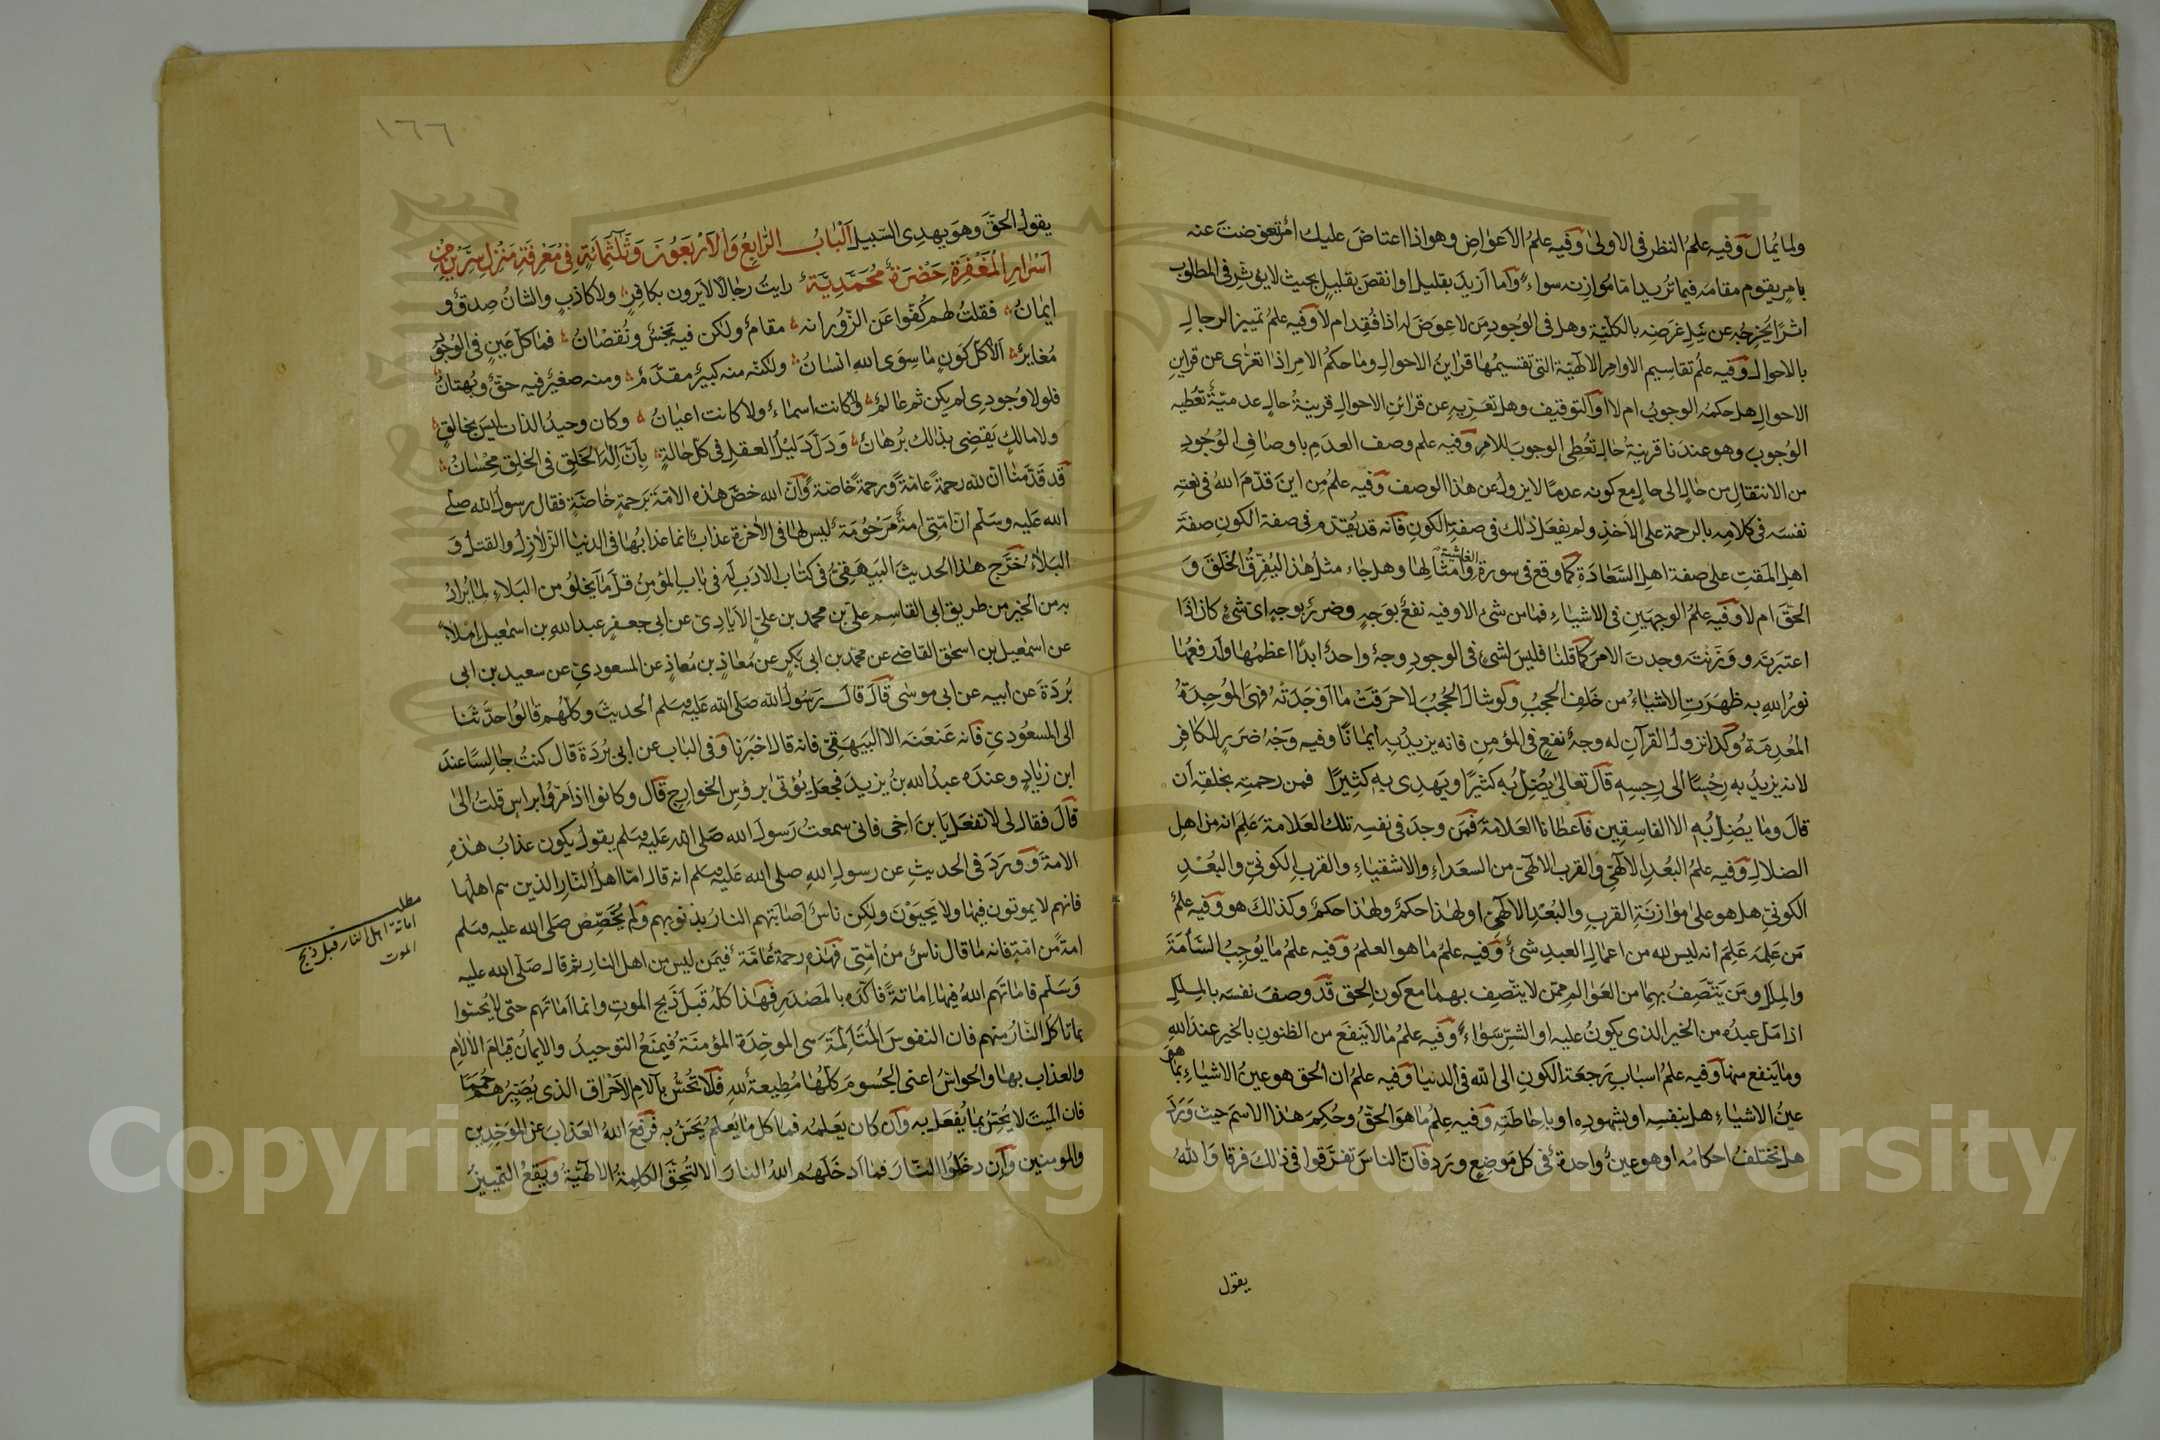 ولما يمال وفيه علم النظر في الاولى وفيه علم الاعواض وهو اذا اعتاض عليك امر تعوضت عنه
بامر يقوم مقامه فيما تريد اما موازنه سواء واما ازيد بقليل او انقص بقليل بحيث لا يوثر في المطلوب
اثرا يخرجه عن نيل غرضه بالكلية وهل في الوجود من لا عوض له اذا فقد ام لا وفيه علم تمييز الرجال
بالاحوال وفيه علم تقاسيم الاوامر الالهية التي تقسيمها قراين الاحوال وما حكم الامر اذا تعرى عن قراين
الاحوال هل حكمه الوجوب ام لا او التوقيف وهل تعريه عن قرائن الاحوال قرينة حال عدمية تعطيه
الوجوب وهو عندنا قرينة حال تعطى الوجوب للامر وفيه علم وصف العدم باوصاف الوجود
من الانتقال من حال الى حال مع كونه عدما لا يزول عن هذا الوصف وفيه علم من اين قدم الله في نعته
نفسه في كلامه بالرحمة على الاخذ ولم يفعل ذلك في صفة الكون فانه قد يقدم في صفة الكون صفة
اهل المقت على صفة اهل السعادة كما وقع في سورة الغاشية وامثالها وهل جاء مثل هذا ليفرق الخلق و
الحق ام لا وفيه علم الوجهين في الاشياء فما من شئ الا وفيه نفع بوجه وضر بوجه اى شئ كان اذا
اعتبرته ووزنته وجدت الامر كما قلنا فليس لشئ في الوجود وجه واحد ابدا اعظمها وارفعها
نور الله به ظهرت الاشياء من خلف الحجب ولو شال الحجب لاحرقت ما اوجدته فهى الموجدة
المعدمة وكذا نزول القرآن له وجه نفع في المؤمن فانه يزيد به ايمانا وفيه وجه ضرر للكافر
لانه يزيد به رجسا الى رجسه قال تعالى يضل به كثيرا ويهدى به كثيرا فمن رحمته بخلقه ان
قال وما يضل به الا الفاسقين فاعطانا العلامة فمن وجد في نفسه تلك العلامة علم انه من اهل
الضلال وفيه علم البعد الالهى والقرب الالهى من السعداء والاشقياء والقرب الكونى والبعد
الكونى هل هو على موازنة القرب والبعد الالهى او لهذا حكم ولهذا حكم وكذلك هو وفيه علم
من علمه علم انه ليس لله من اعمال العبد شئ وفيه علم ما هو العلم وفيه علم ما يوجب السأمة
والملل ومن يتصف بهما من العوالم ممن لا يتصف بهما مع كون الحق قد وصف نفسه بالملل
اذا مل عبده من الخير الذى يكون عليه او الشر سواء وفيه علم ما لا ينفع من الظنون بالخير عند الله
وما ينفع منها وفيه علم اسباب رجعة الكون الى الله في الدنيا وفيه علم ان الحق هو عين الاشياء بما هو
عين الاشياء هل بنفسه او بشهوده او باحاطته وفيه علم ما هو الحق وحكم هذا الاسم حيث ورد
هل تختلف احكامه او هو عين واحدة في كل موضع ورد فان الناس تفرقوا في ذلك فرقا والله
يقول
١٦٦
يقول الحق وهو يهدى السبيل الباب الرابع والاربعون وثلثمائة في معرفة منزل سرين من
اسرار المغفرة حضرة محمدية رايت رجالا لا يرون بكافر ولا كاذب والشان صدق و
ايمان فقلت لهم كفوا عن الزور انه مقام ولكن فيه بخس ونقصان فما كل عين في الوجود
مغاير الا كل كون ما سوى الله انسان ولكنه منه كبير مقدم ومنه صغير فيه حق وبهتان
فلولا وجودى لم يكن ثم عالم ولا كانت اسماء ولا كانت اعيان وكان وحيد الذات ليس بخالق
ولا مالك يقضى بذالك برهان ودل دليل العقل في كل حالة بان اله الخلق في الخلق محسان
قد قدمنا ان لله رحمة عامة ورحمة خاصة وان الله خص هذه الامة برحمة خاصة فقال رسول الله صلى
الله عليه وسلم ان امتى امة مرحومة ليس لها في الاخرة عذاب انما عذابها في الدنيا الزلازل والقتل و
البلاء خرج هذا الحديث البيهقى في كتاب الادب له في باب المؤمن قل ما يخلو من البلاء لما يراد
به من الخير من طريق ابى القاسم على بن محمد بن على الايادى عن ابى جعفر عبد الله بن اسمعيل املاء
عن اسمعيل بن اسحق القاضى عن محمد بن ابى بكر عن معاذ بن معاذ عن المسعودى عن سعيد بن ابى
بردة عن ابيه عن ابى موسى قال قال رسول الله صلى الله عليه وسلم الحديث وكلهم قالوا حدثنا
الى المسعودى فانه عنعنه الا البيهقى فانه قال اخبرنا وفي الباب عن ابى بردة قال كنت جالسا عند
ابن زياد وعنده عبد الله بن يزيد فجعل يؤتى برؤس الخوارج قال وكانوا اذا مروا براس قلت الى
قال فقال لى لا تفعل يا بن اخى فانى سمعت رسول الله صلى الله عليه وسلم يقول يكون عذاب هذه
الامة وورد في الحديث عن رسول الله صلى الله عليه وسلم انه قال اما اهل النار الذين هم اهلها
فانهم لا يموتون فيها ولا يحيون ولكن ناس اصابتهم النار بذنوبهم ولم يخصص صلى الله عليه وسلم
امة من امة فانه ما قال ناس من امتى فهذه رحمة عامة فيمن ليس من اهل النار ثم قال صلى الله عليه
وسلم فاماتهم الله فيها اماتة فاكده بالمصدر فهذا كله قبل ذبح الموت وانما اماتهم حتى لا يحسوا
بما تاكل النار منهم فان النفوس المتألمة هى الموحدة المؤمنة فيمنع التوحيد والايمان قيام الالام
والعذاب بها والحواس اعنى الجسوم كلها مطيعة لله فلا تحس بآلام الاحراق الذى يصيرهم حمما
فان الميت لا يحس بما يفعل به وان كان يعلمه فما كل ما يعلم يحس به فرفع الله العذاب عن الموحدين
والمومنين وان دخلوا النار فما ادخلهم الله النار الا لتحقق الكلمة الالهية ويقع التمييز
مطلب
اماتة اهل النار قبل ذبح
الموت
Copyright © King Saud University